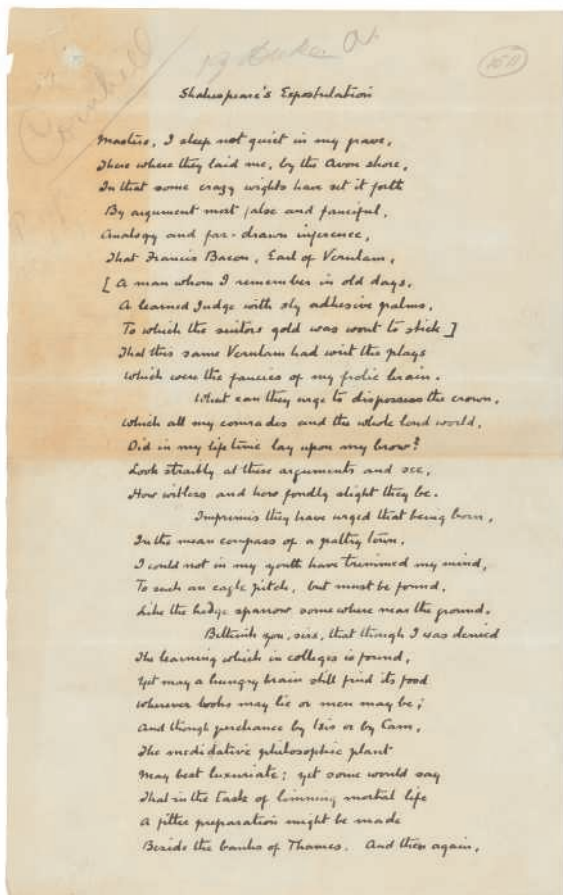 Cornhill
150
Shakespeare's Expostulation
Masters, I sleep not quiet in my grave,
There where they laid me, by the Avon shore,
In that some crazy wights have set it forth
By argument most false and fanciful,
Analogy and far-drawn inference,
That Francis Bacon, Earl of Verulam,
[A man whom I remember in old days,
A learned Judge with sly adhesive palms,
To which the suitors gold was wont to stick]
That this same Verulam had writ the plays
Which were the fancies of my frolic brain.
What can they urge to dispossess the crown,
Which all my comrades and the whole loud world,
Did in my lifetime lay upon my brow?
Look straitly at these arguments and see,
How witless and how fondly slight they be.
Imprimis they have urged that being born,
In the mean compass of a paltry town,
I could not in my youth have trimmed my mind,
To such an eagle pitch, but must be found,
Like the hedge sparrow somewhere near the ground.
Bethink you, sirs, that though I was denied
The learning which in colleges is found,
Yet may a hungry brain still find its food
Wherever books may lie or men may be;
And though perchance by Isis or by Cam,
The medidative philosophic plant
May best luxuriate; yet some would say
That in the task of limning mortal life
A fitter preparation might be made
Beside the banks of Thames. And then again,